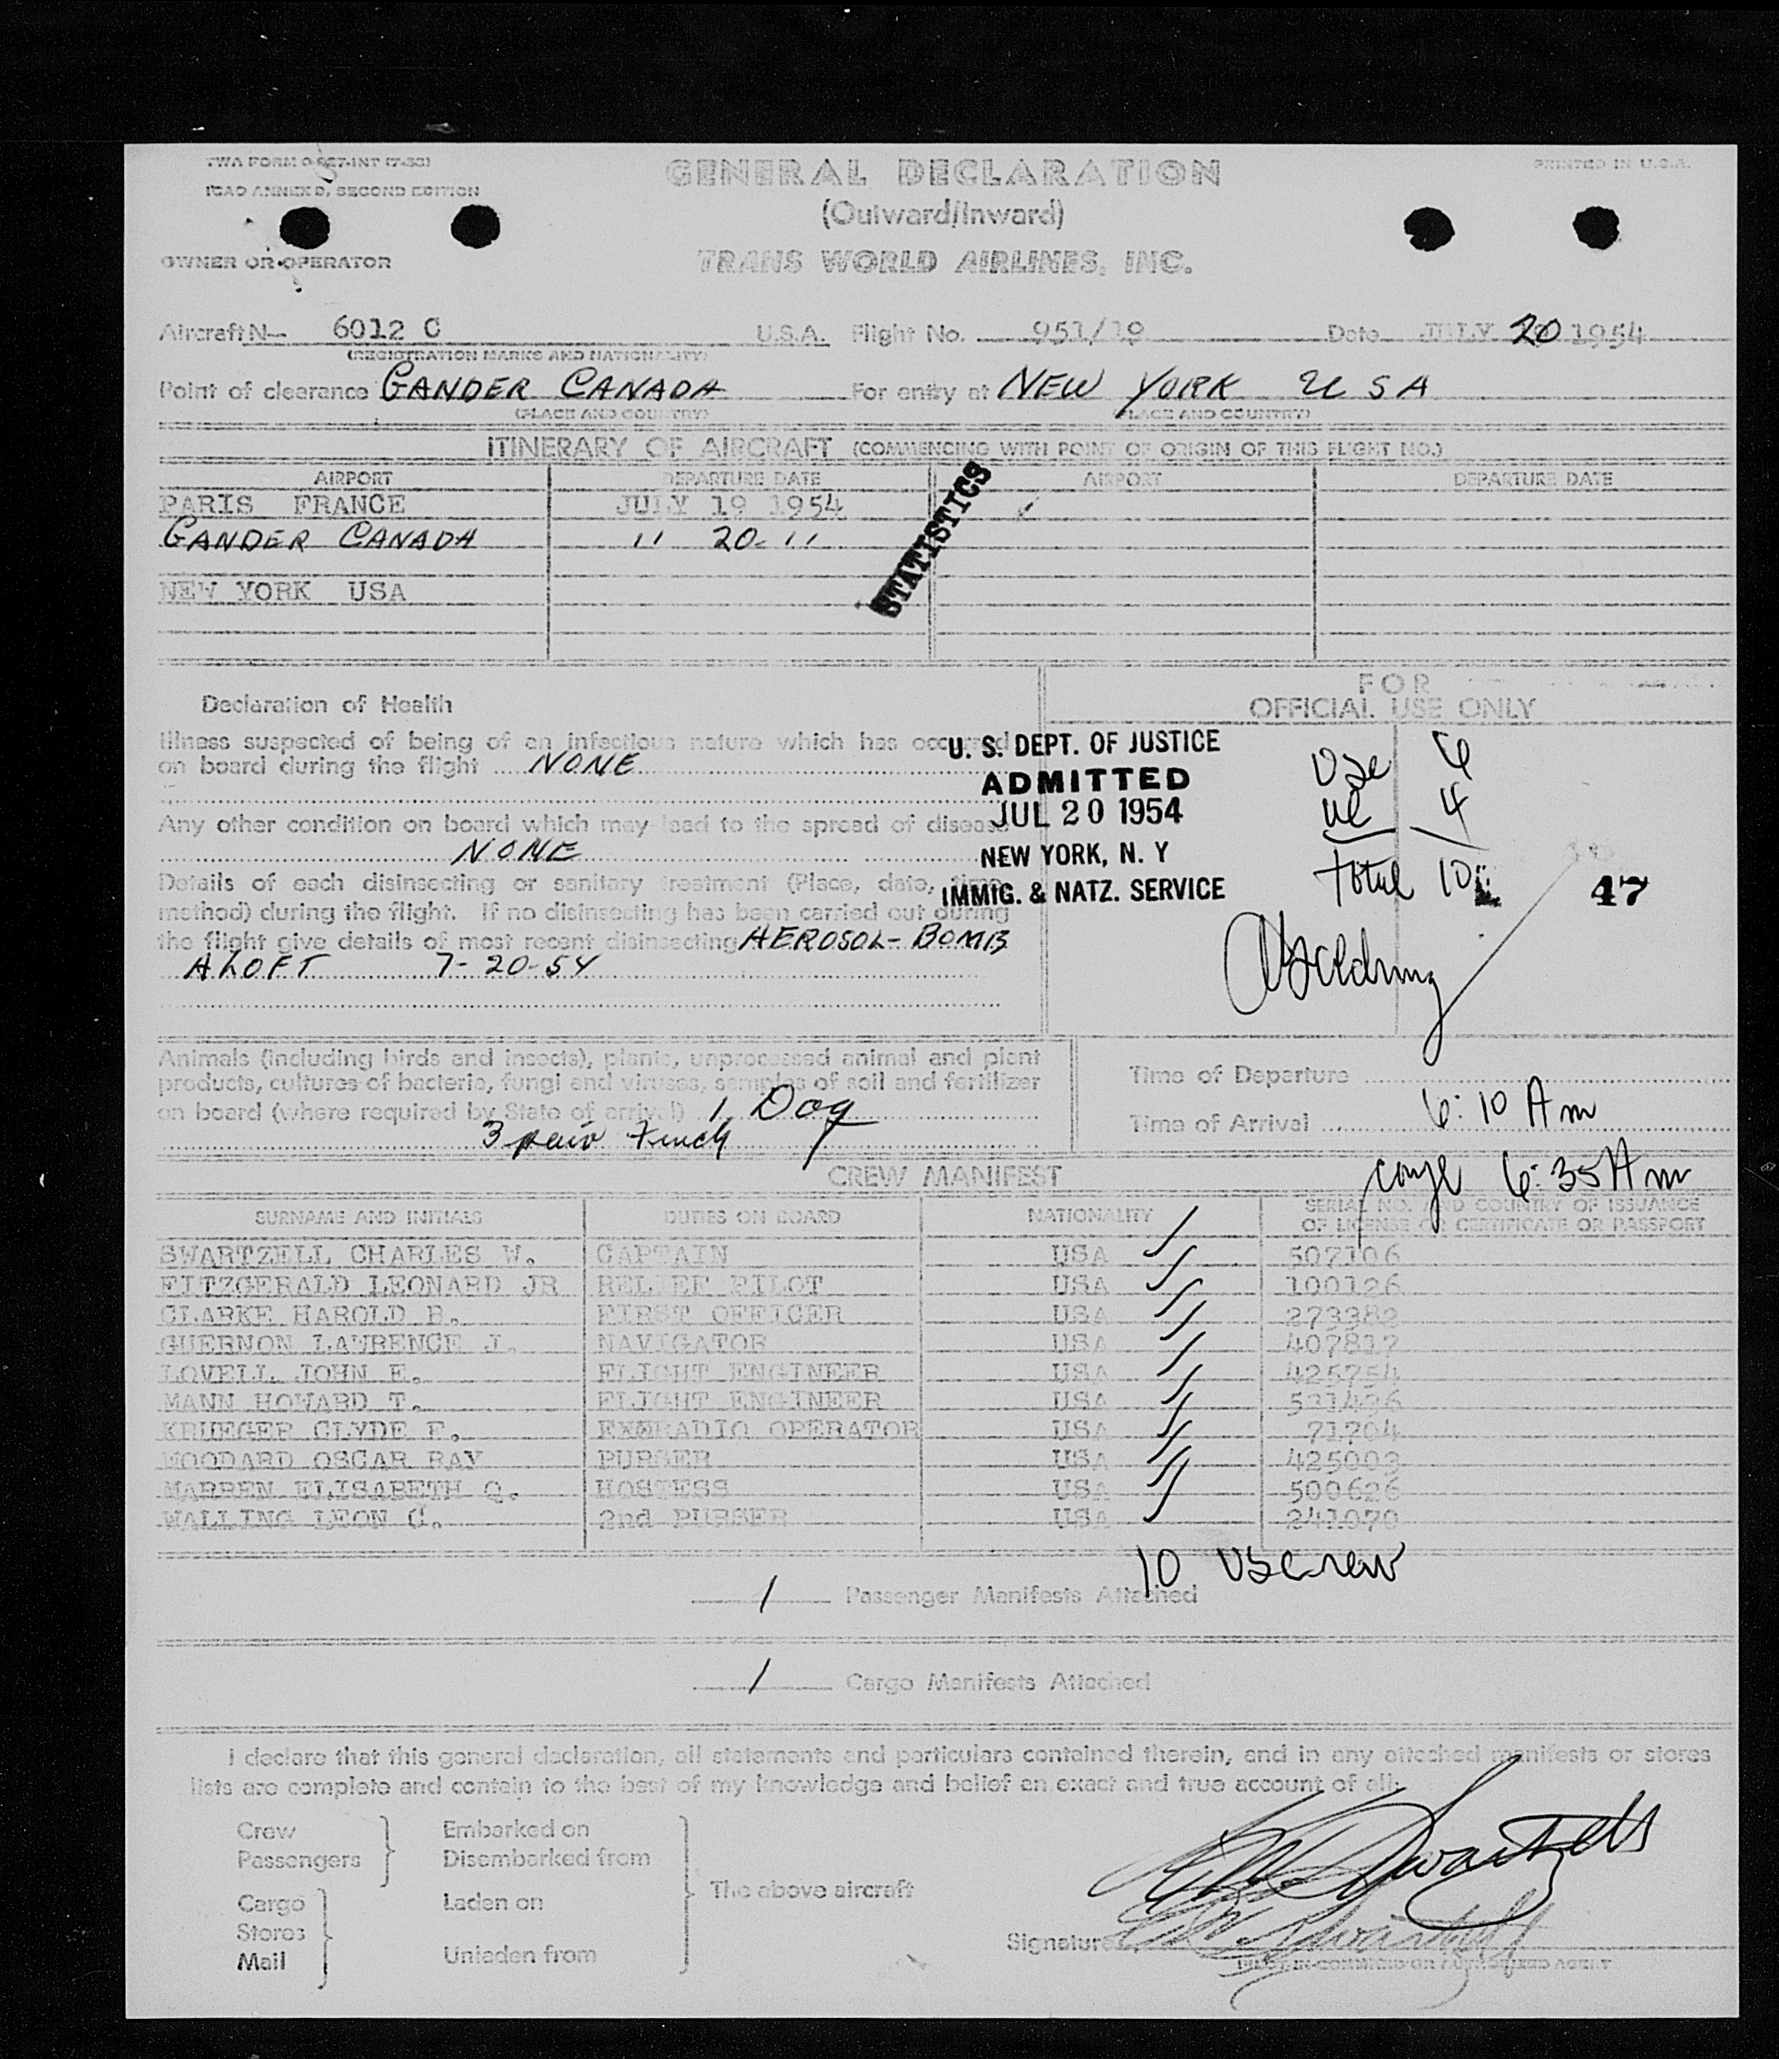 TWA FORM O-557-INT (7-53)
ICAO ANNEX 9, SECOND EDITION
GENERAL DECLARATION
PRINTED IN U.S.A.
(Outward/Inward)
OWNER OR OPERATOR
TRANS WORLD AIRLINES, INC.
Aircraft N- 6012 C U.S.A. Flight No. 951/19 Date JULY 20 1954
(REGISTRATION MARKS AND NATIONALITY)
Point of clearance GANDER CANADA For entry at NEW YORK USA
(PLACE AND COUNTRY) (PLACE AND COUNTRY)
ITINERARY OF AIRCRAFT (COMMENCING WITH POINT OF ORIGIN OF THIS FLIGHT NO.)
AIRPORT DEPARTURE DATE AIRPORT DEPARTURE DATE
PARIS FRANCE JULY 19 1954
GANDER CANADA " 20- "
STATISTICS
NEW YORK USA
Declaration of Health
FOR
OFFICIAL USE ONLY
Illness suspected of being of an infectious nature which has occurred
on board during the flight NONE
Any other condition on board which may lead to the spread of disease
NONE
Details of each disinsecting or sanitary treatment (Place, date, time,
method) during the flight. If no disinsecting has been carried out during
the flight give details of most recent disinsecting AEROSOL-BOMB
ALOFT 7-20-54
U. S. DEPT. OF JUSTICE
ADMITTED
JUL 20 1954
NEW YORK, N. Y
IMMIG. & NATZ. SERVICE
USC 6
4
Total 10
47
Animals (including birds and insects), plants, unprocessed animal and plant
products, cultures of bacteria, fungi and viruses, samples of soil and fertilizer
on board (where required by State of arrival) 1 Dog
3 pair Finch
Time of Departure
Time of Arrival 6:10 Am
6:35 Am
CREW MANIFEST
SURNAME AND INITIALS DUTIES ON BOARD NATIONALITY SERIAL NO. AND COUNTRY OF ISSUANCE
OF LICENSE OR CERTIFICATE OR PASSPORT
SWARTZELL CHARLES W. CAPTAIN USA 507106
FITZGERALD LEONARD JR RELIEF PILOT USA 100126
CLARKE HAROLD B. FIRST OFFICER USA 273382
GUERNON LAWRENCE J. NAVIGATOR USA 407817
LOVELL JOHN E. FLIGHT ENGINEER USA 425754
MANN HOWARD T. FLIGHT ENGINEER USA 531426
KRUEGER CLYDE F. RADIO OPERATOR USA 71704
WOODARD OSCAR RAY PURSER USA 425003
WARREN ELISABETH Q. HOSTESS USA 500626
WALLING LEON C. 2nd PURSER USA 241070
10 USCrew
1 Passenger Manifests Attached
1 Cargo Manifests Attached
I declare that this general declaration, all statements and particulars contained therein, and in any attached manifests or stores
lists are complete and contain to the best of my knowledge and belief an exact and true account of all:
Crew
Passengers
Embarked on
Disembarked from
Cargo
Stores
Mail
Laden on
Unladen from
The above aircraft
CW Swartzell
Signature CW Swartzell
PILOT IN COMMAND OR AUTHORIZED AGENT